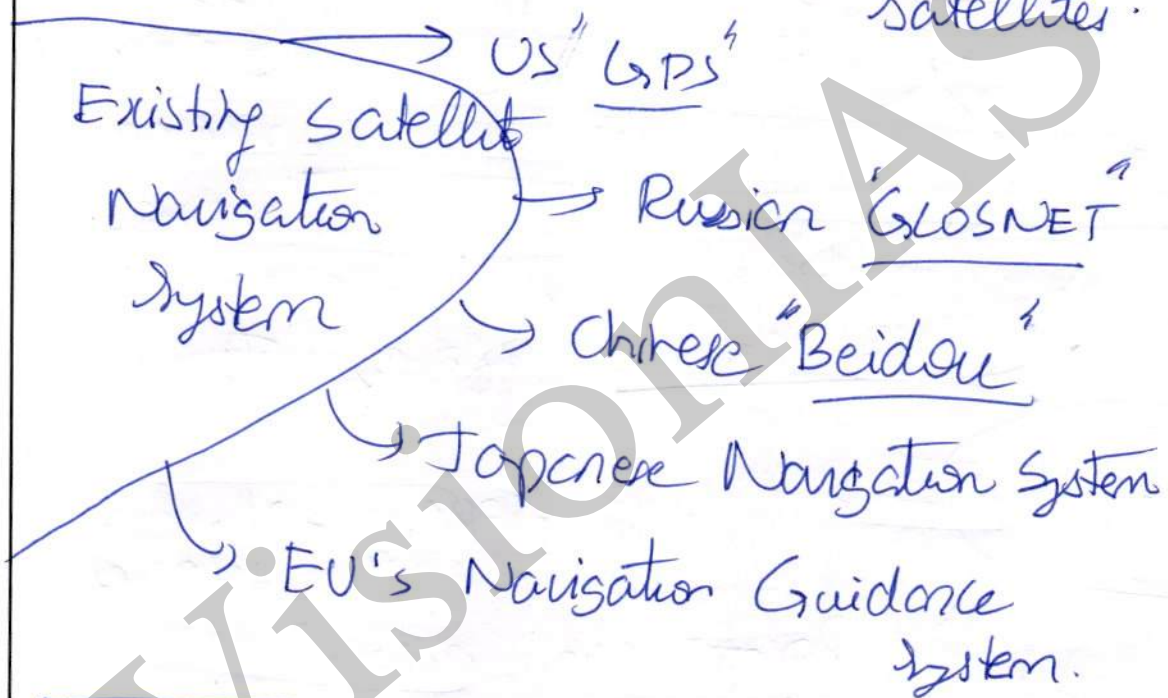 satellites.
US "GPS"
Existing satellite
Navigation
System
Russian "GLOSNET"
Chinese "Beidou"
Japanese Navigation System
EU's Navigation Guidance
System.
VisionIAS